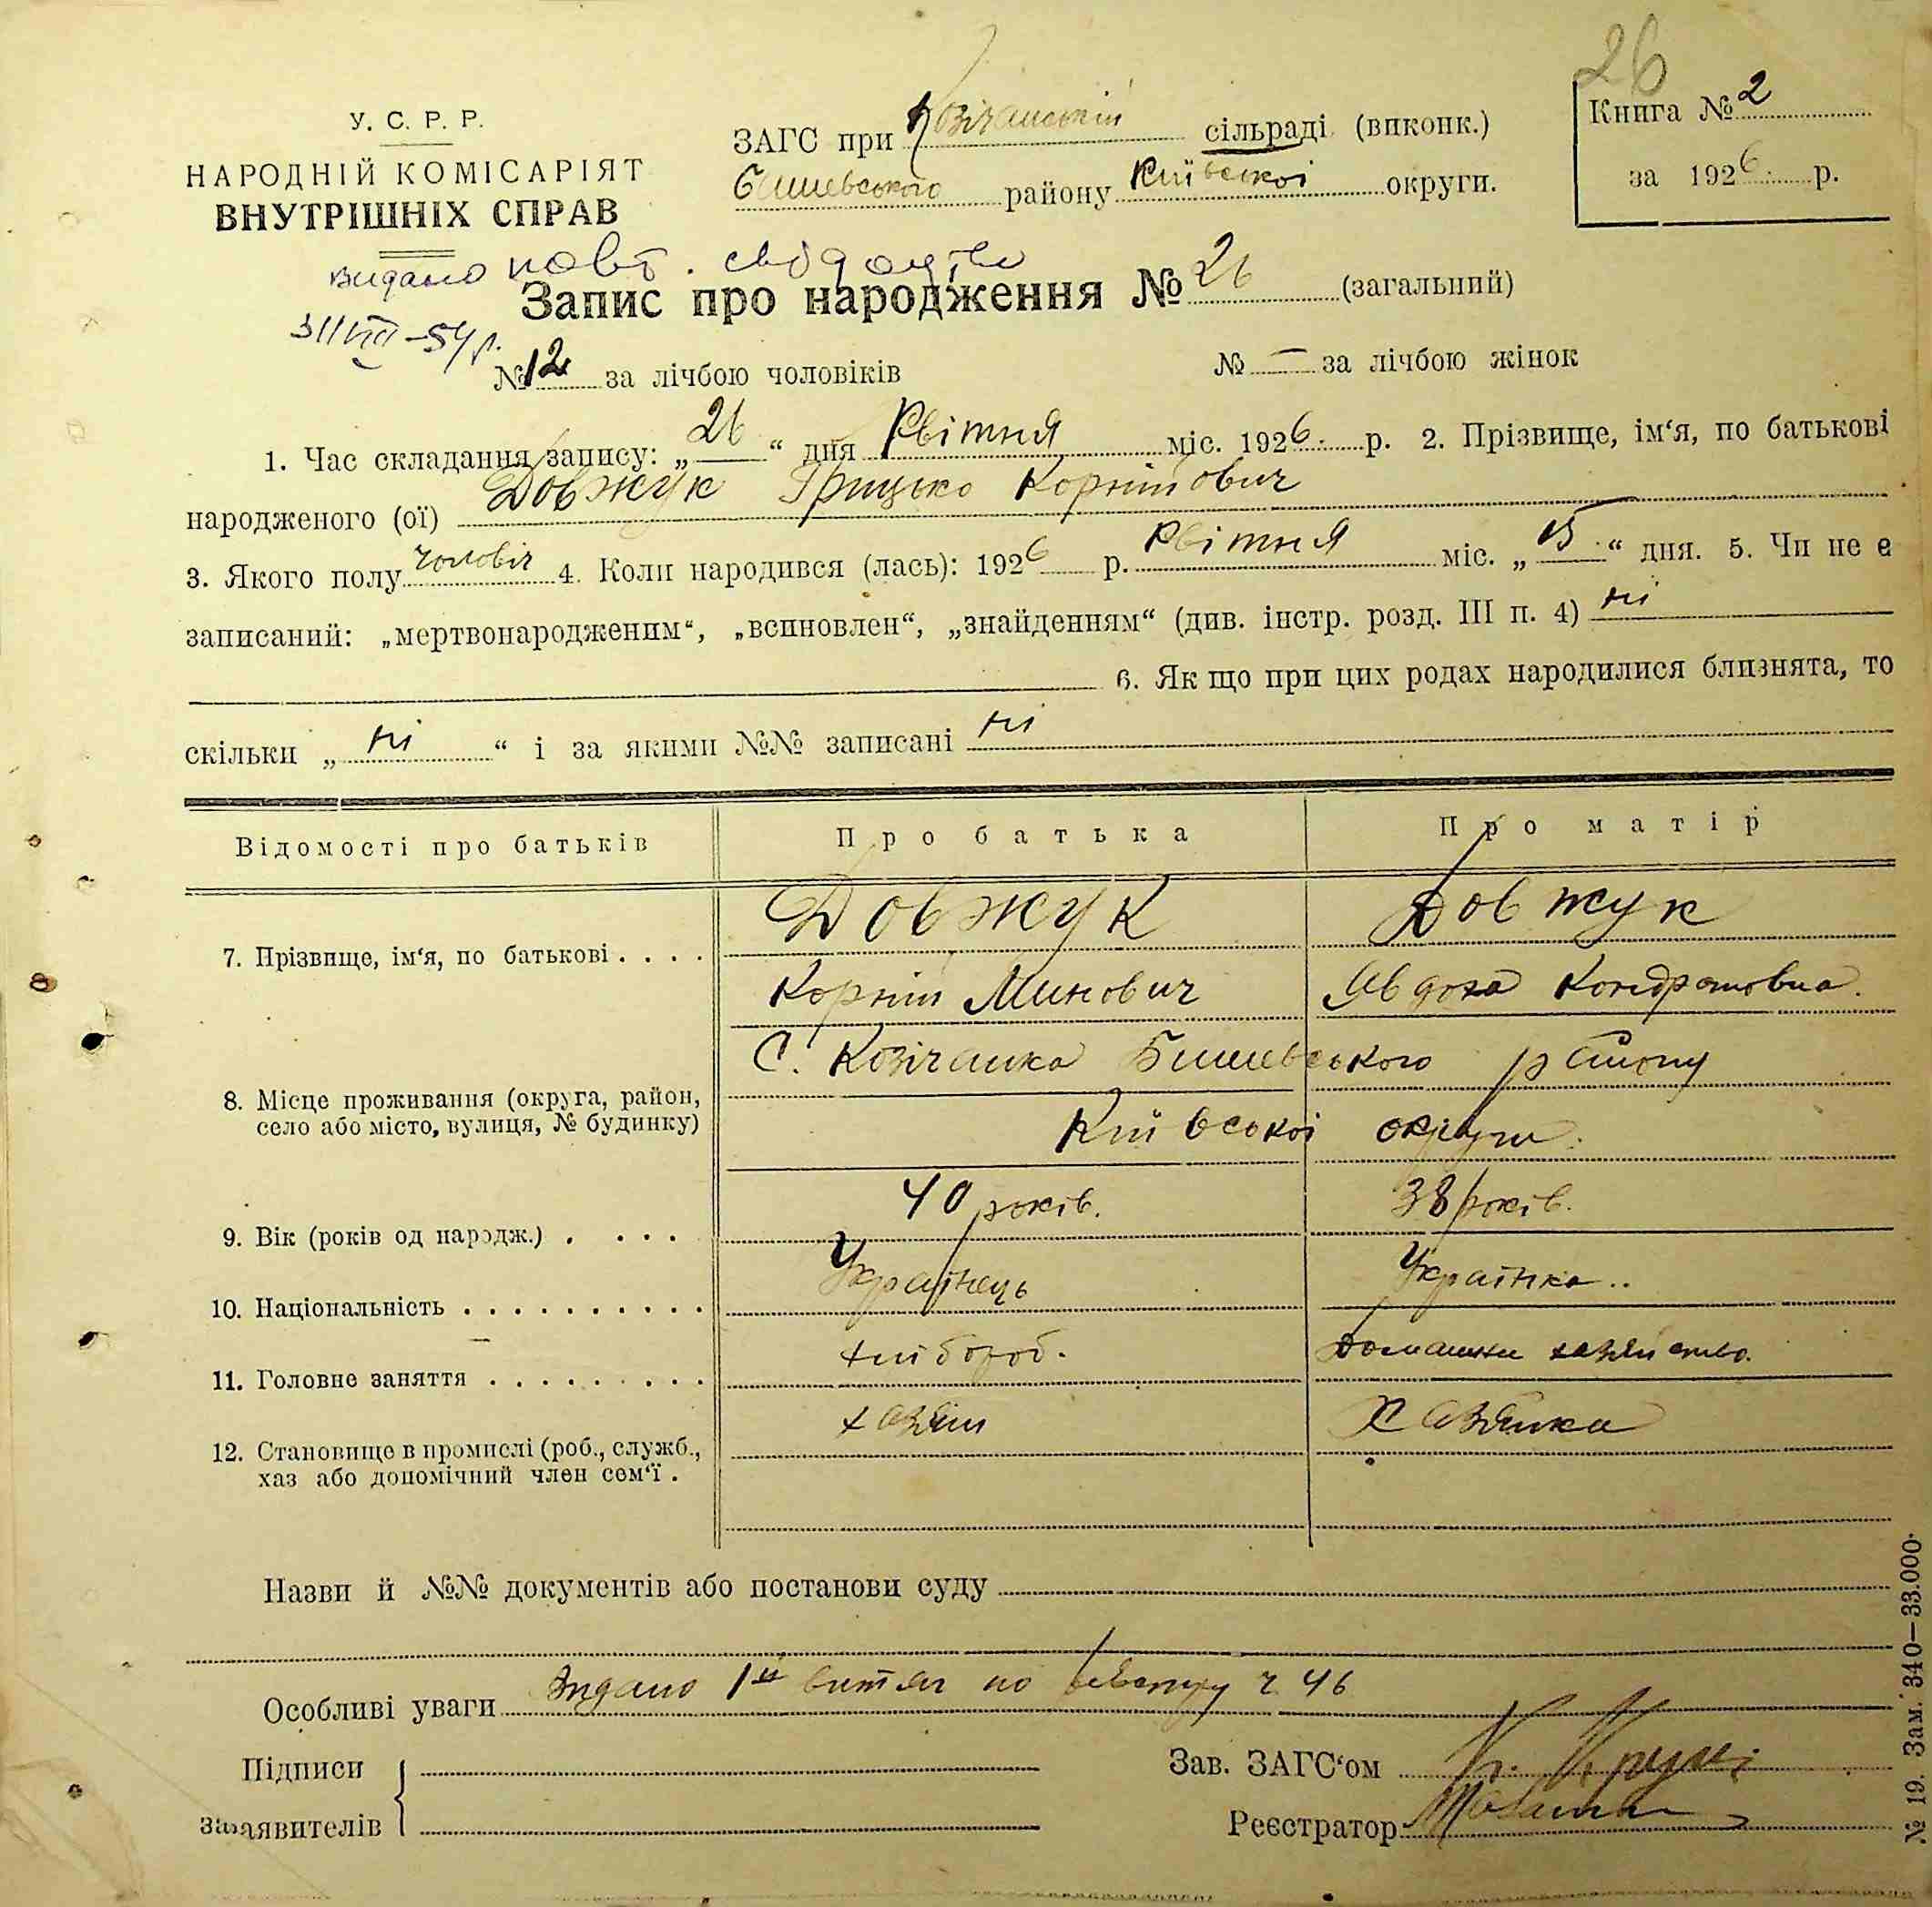 26
У. С. Р. Р.
НАРОДНІЙ КОМІСАРІЯТ
ВНУТРІШНІХ СПРАВ
ЗАГС при Козічанській сільраді (виконк.)
Бишевського району Київської округи.
Книга № 2
за 1926 р.
видано повт. свідоцтво
3 II VIII -54 р.
Запис про народження № 26 (загальний)
№ 12 за лічбою чоловіків
№ — за лічбою жінок
1. Час складання запису: „26“ дня Квітня міс. 1926 р. 2. Прізвище, ім‘я, по батькові
народженого (ої) Довжук Грицько Корнійович
3. Якого полу чоловіч 4. Коли народився (лась): 1926 р. Квітня міс. „15“ дня. 5. Чи не є
записаний: „мертвонародженим“, „всиновлен“, „знайденням“ (див. інстр. розд. III п. 4) ні
6. Як що при цих родах народилися близнята, то
скільки „ ні “ і за якими №№ записані ні
Відомості про батьків
Про батька
Про матір
7. Прізвище, ім‘я, по батькові . . . .
Довжук
Довжук
Корній Минович
Явдоха Кондратовна.
8. Місце проживання (округа, район,
село або місто, вулиця, № будинку)
С. Козічанка Бишевського району
Київської округи.
9. Вік (років од народж.) . . . .
40 років.
38 років.
10. Національність . . . . . . . . . .
Українець
Українка..
11. Головне заняття . . . . . . . . .
хлібороб.
Домашнє хазяйство.
12. Становище в промислі (роб., служб.,
хаз або допомічний член сем‘ї .
хазяїн
Хазяйка
Назви й №№ документів або постанови суду
Особливі уваги видано 1й витяг по ч 46
Підписи
заявителів
Зав. ЗАГС‘ом
Реєстратор
№ 19. Зам. 340—33.000.